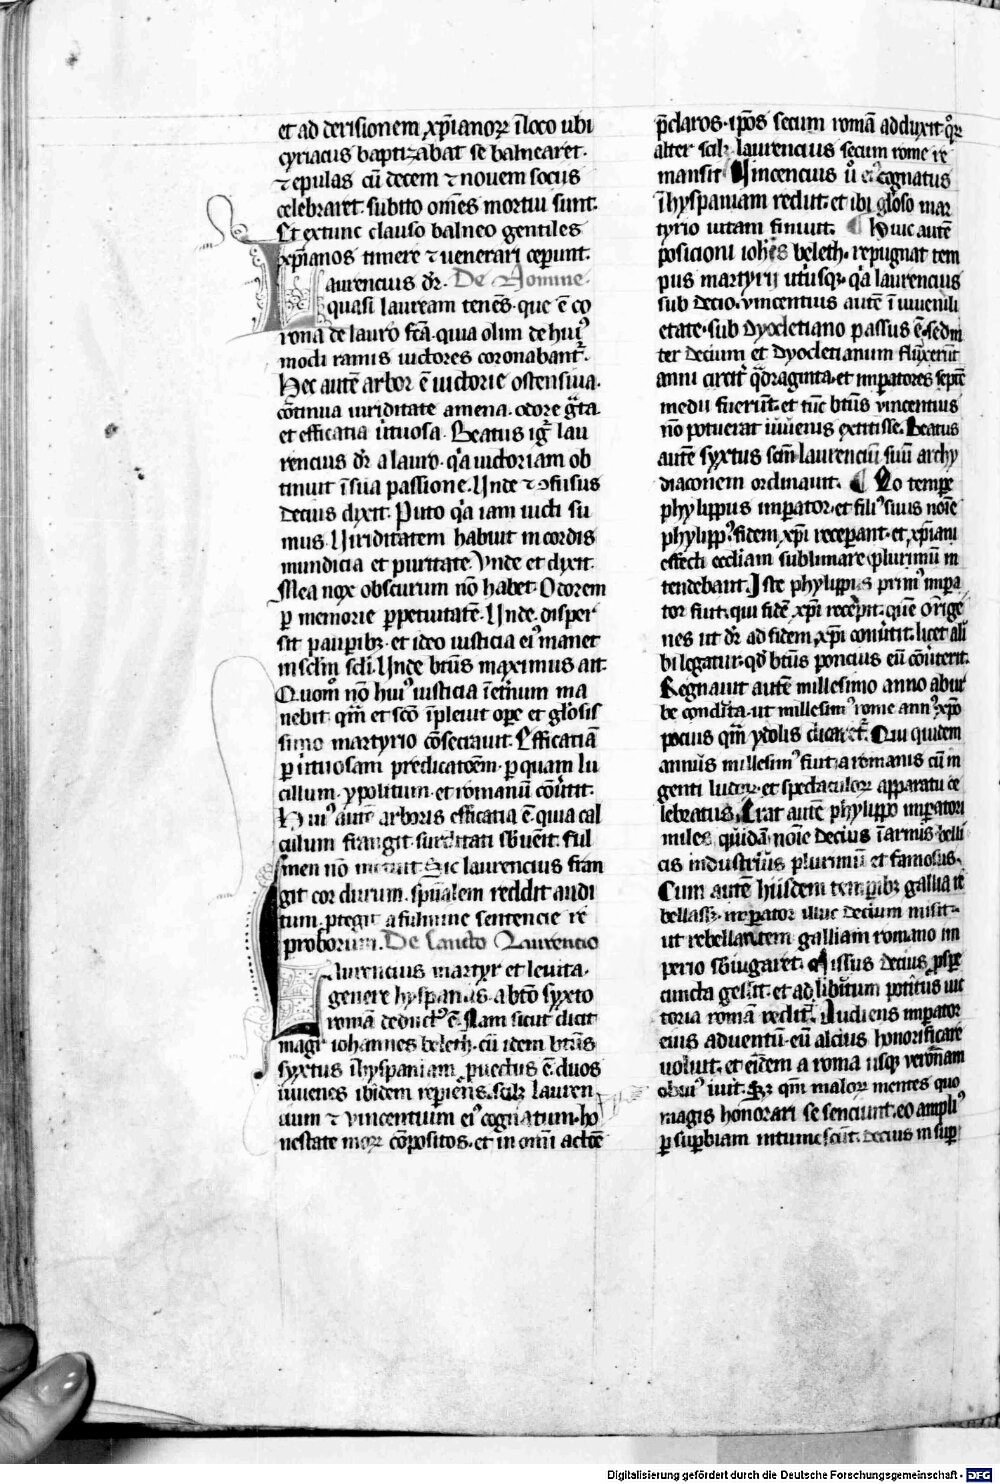 et ad derisionem xp̄ianoꝝ ī loco ubi
cyriacus baptizabat se balnearet·
⁊ epulas cū decem ⁊ novem sociis
celebraret· subito om̄es mortui sunt·
Et extunc clauso balneo gentiles
xp̄ianos timere ⁊ venerari ceperunt·
Laurencius dr̄· De Nomine
quasi lauream tenēs· que ē co
rona de lauro fc̄a· quia olim de huiꝰ
modi ramis victores coronabant᷑·
Hec autē arbor ē victorie ostensiva·
cōtinua viriditate amena· odore gͣta·
et efficatia v̓tuosa· Beatus igr̄ lau
rencius dr̄ a lauro· qͥa victoriam ob
tinuit ī sua passione· Unde ⁊ ꝯfusus
Decius dixit· Puto qͥa iam victi su
mus· Viriditatem habuit in cordis
mundicia et puritate· Vnde et dixit·
Mea nox obscurum nō habet· Odorem
ꝑ memorie ꝑpetuitatē· Unde· disper
sit pauꝑibꝫ· et ideo iusticia eiꝰ manet
in sclm̄ scli̅· Unde btūs maximus ait·
Quomͦ nō huiꝰ iusticia īet̓num ma
nebit· qm̄ et sc̄o īplevit oꝑe et glōsis
simo martyrio cōsecravit· Efficatiā
ꝑ v̓tuosam predicatōem· ꝑ quam lu
cillum· ypolitum· et romanū cōv̓tit·
Huiꝰ autē arboris efficatia ē· quia cal
culum frangit· surditati sbvēit· ful
men nō metuit· Sic laurencius fran
git cor durum· sp̄ualem reddit audi
tum· ꝓtegit a fulmine sentencie re
proborum· De sancto Laurencio
Laurencius martyr et levita·
genere hyspanus· a btō syxto
romā deductꝰ ē· Nam sicut dicit
magr̄ iohannes beleth· cū idem btūs
syxtus ī hyspaniam ꝓvectus ē· duos
iuvenes ibidem reperiēs· scilꝫ lauren
cium ⁊ vincentium eiꝰ cognatum· ho
nestate moꝝ cōpositos· et in om̄i actōe
p̄claros· ip̄os secum romā adduxit· qͦꝝ
alter scilꝫ laurencius secum rome re
mansit· Vincencius v̊ eiꝰ cognatus
ī hyspaniam rediit· et ibi glōso mar
tyrio vitam finivit· ¶ Huic autē
posicioni ioh̄is beleth· repugnat tem
pus martyrii utriusqꝫ· qͥa laurencius
sub Decio· vincentius autē ī iuvenili
etate· sub Dyocletiano passus ē· sed in
ter Decium et Dyocletianum fluxerūt
anni circit̓ qͣdraginta· et imꝑatores septē
medii fuerūt· et tūc btūs vincentius
nō potuerat iuvenis extitisse· Beatus
autē syxtus scm̄ laurenciū suū archy
diaconem ordinavit· ¶ Eo tempe
phylippus imꝑator· et filiꝰ suus noīe
phylippꝰ· fidem xp̄i receꝑant· et xp̄iani
effecti ecclīam sublimare plurimū in
tendebant· Iste phylippus primꝰ imꝑa
tor fuit· qui fidē xp̄i recepit· quē origē
nes ut dr̄ ad fidem xp̄i conv̓tit· licet ali
bi legatur· qd̄ btūs poncius eū cōv̓terit·
Regnavit autē millesimo anno ab ur
be condita· ut millesimꝰ rome annꝰ xp̄o
pocius qm̄ ydolis dicaret᷑· Qui quidem
annus millesimꝰ fuit a romanis cū in
genti ludoꝝ· et spectaculoꝝ apparatu ce
lebratus· Erat autē phylippo imꝑatori
miles quidā noīe Decius ī armis belli
cis industrius plurimū et famosus·
Cum autē hiisdem tempibꝫ gallia re
bellass̄· imꝑator illuc Decium misit·
ut rebellantem galliam romano im
perio sbiugaret· Missus decius ꝓsꝑe
cuncta gessit· et ad libitum potitus vic
toria romā rediit· Audiens imꝑator
eius adventū· eū alcius honorificare
voluit· et eidem a roma usqꝫ veronam
obviꝰ ivit· Sꝫ qm̄ maloꝝ mentes quo
magis honorari se senciunt· eo ampliꝰ
ꝑ suꝑbiam intumescūt· Decius in suꝑ